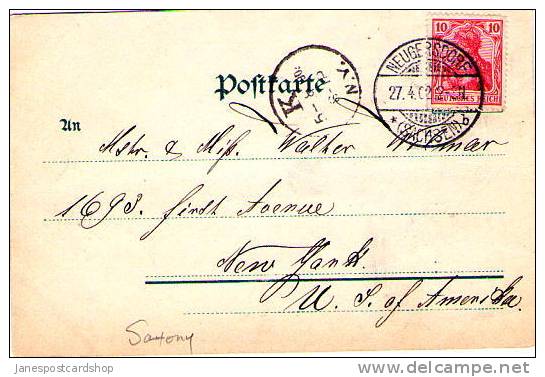 10 10
DEUTSCHES REICH
NEUGERSDORF
27.4.02
* (SACHSEN)
N.Y.
K
Postkarte
An
Mstr. & Miß. Walther
1693. first Avenue
New York.
U. S. of Amerika.
Saxony
Janespostcardshop
delcampe.net